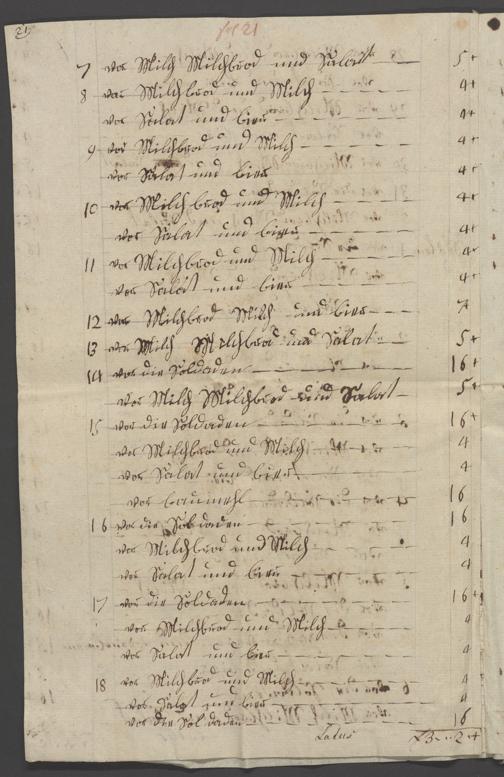 21
fol 21
7 vor Milch Milchbrod und Salat 5 +
8 vor Milchbrod und Milch 4 +
vor Salat und bier 4 +
9 vor Milchbrod und Milch 4 +
vor Salat und bier 4 +
10 vor Milchbrod und Milch 4 +
vor Salat und bier 4 +
11 vor Milchbrod und Milch 4 +
vor Salat und bier 4 +
12 vor Milchbrod Milch und bier 7 +
13 vor Milch Milchbrod und Salat 5 +
14 vor die Soldaden 16 +
vor Milch Milchbrod und Salat 5 +
15 vor die Soldaden 16 +
vor Milchbrod und Milch 4
vor Salat und bier 4
vor baumehl 16
16 vor die Soldaden 16
vor Milchbrod und Milch 4
vor Salat und bier 4
17 vor die Soldaden 16 +
vor Milchbrod und Milch 4
vor Salat und bier 4
18 vor Milchbrod und Milch 4
vor Salat und bier 4
vor die Soldaden 16
Latus 3 2 +